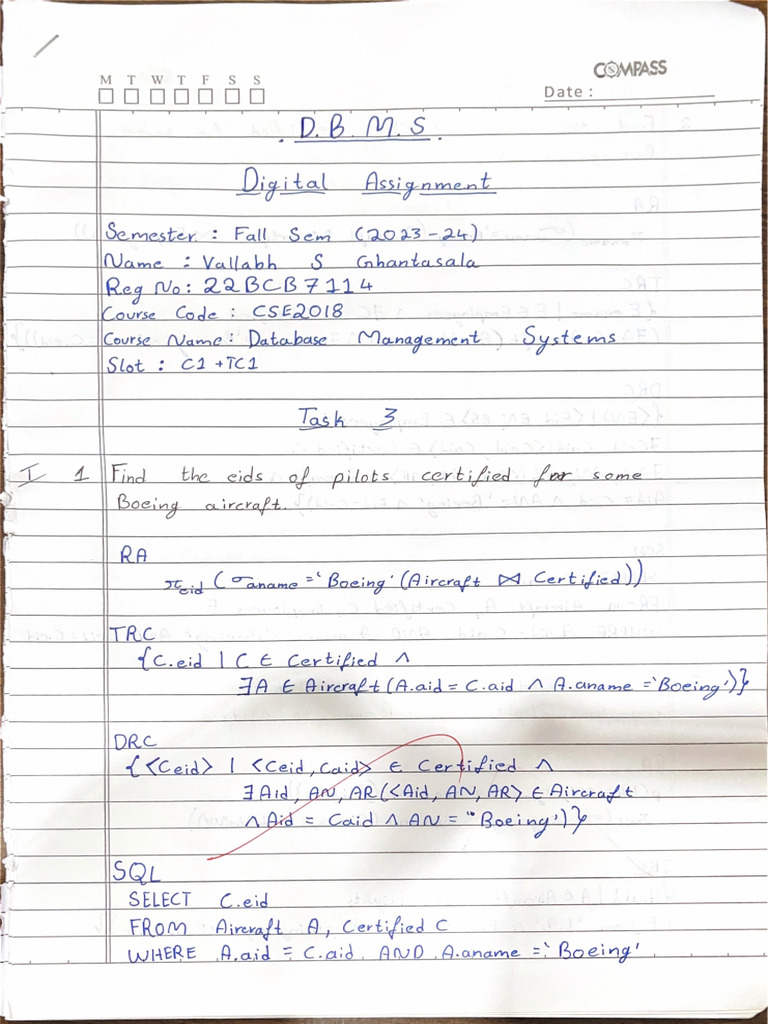 COMPASS
M T W T F S S
Date :
D.B.M.S.
Digital Assignment
Semester : Fall Sem (2023-24)
Name : Vallabh S Ghantasala
Reg No: 22BCB7114
Course Code : CSE2018
Course Name: Database Management Systems
Slot : C1 +TC1
Task 3
I 1 Find the eids of pilots certified for some
Boeing aircraft.
RA
π eid (σ aname ='Boeing' (Aircraft ⋈ Certified))
TRC
{C.eid | C ∈ Certified ∧
∃A ∈ Aircraft (A.aid = C.aid ∧ A.aname ='Boeing')}
DRC
{<Ceid> | <Ceid, Caid> ∈ Certified ∧
∃Aid, AN, AR (<Aid, AN, AR> ∈ Aircraft
∧ Aid = Caid ∧ AN = "Boeing')}
SQL
SELECT C.eid
FROM Aircraft A, Certified C
WHERE A.aid = C.aid AND A.aname ='Boeing'